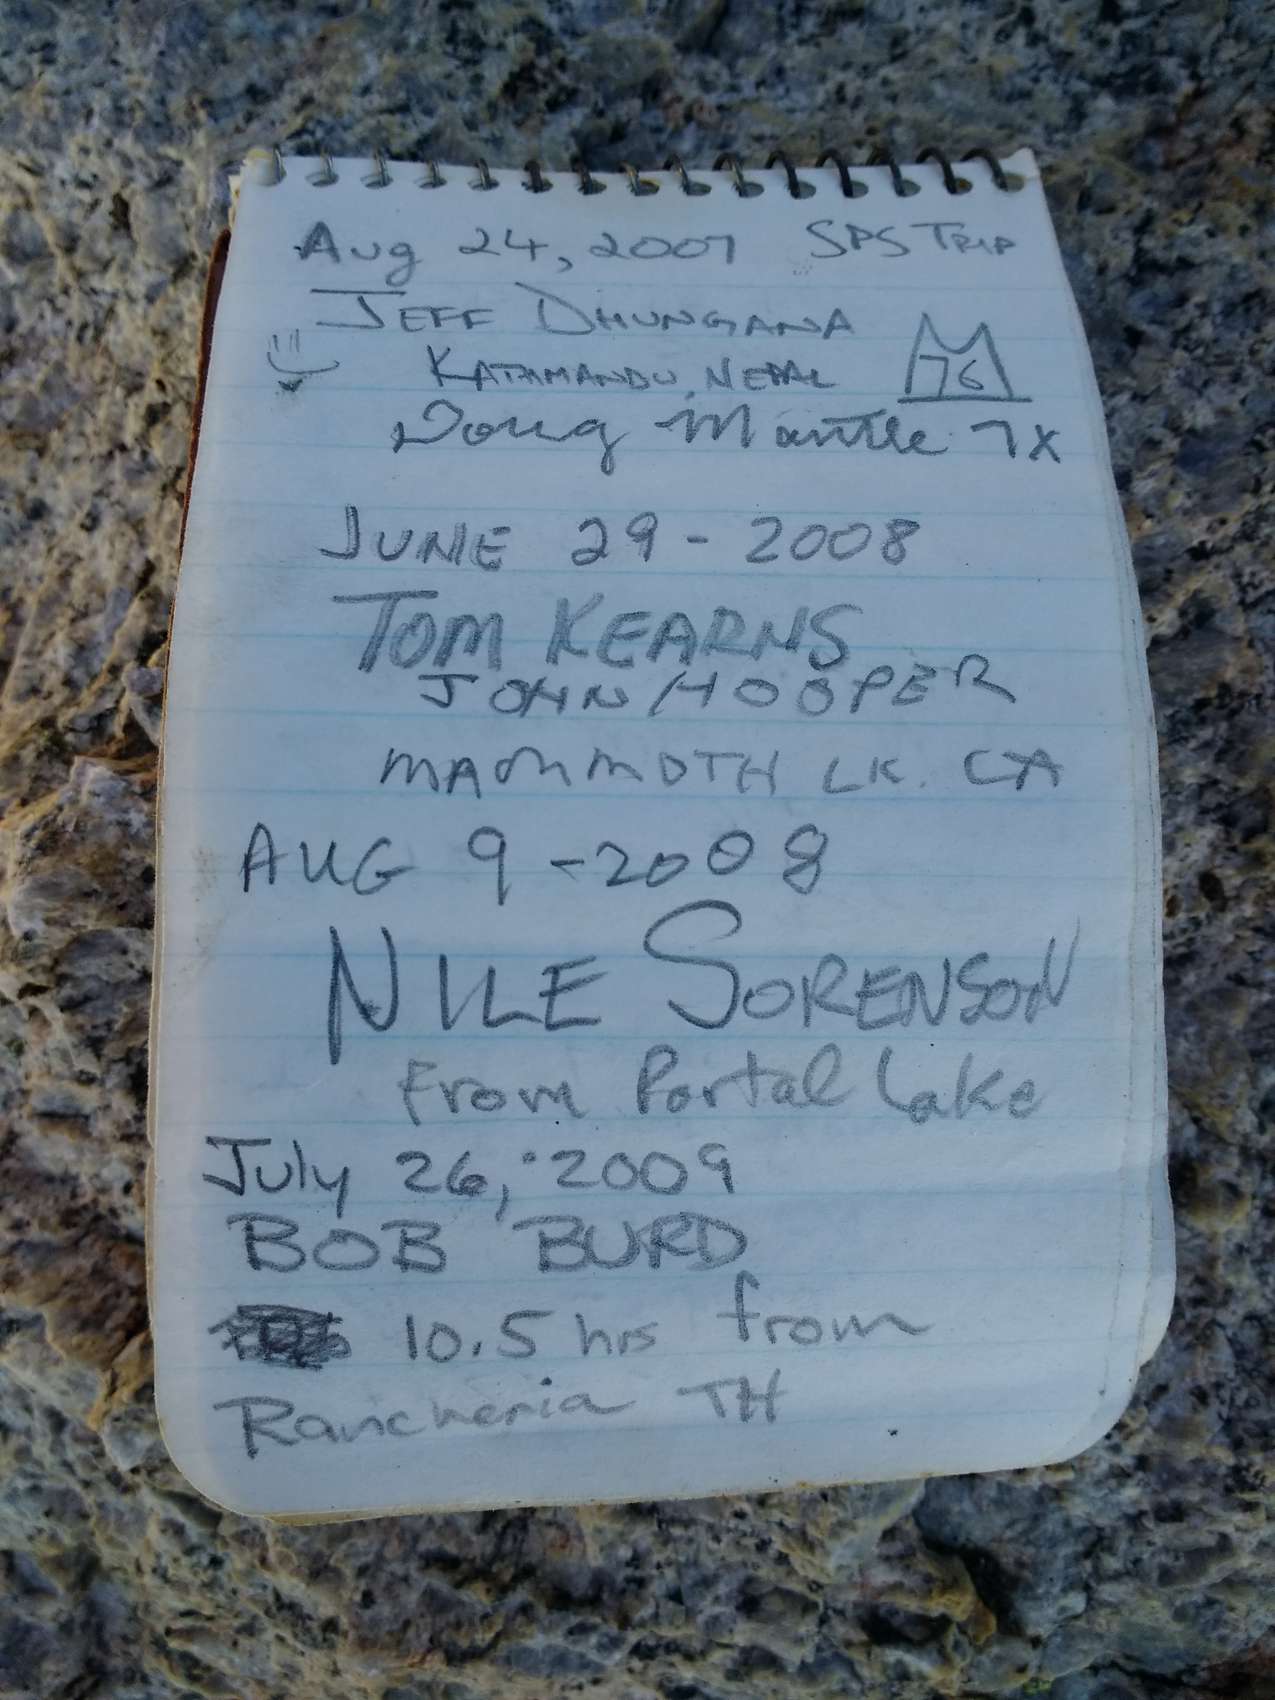 Aug 24, 2007 SPS TRIP
JEFF DHUNGANA
KATHMANDU, NEPAL 76
Doug Mantle 7X
JUNE 29 - 2008
TOM KEARNS
JOHN HOOPER
MAMMOTH LK. CA
AUG 9 - 2008
NILE SORENSON
From Portal Lake
July 26, 2009
BOB BURD
10.5 hrs from
Rancheria TH